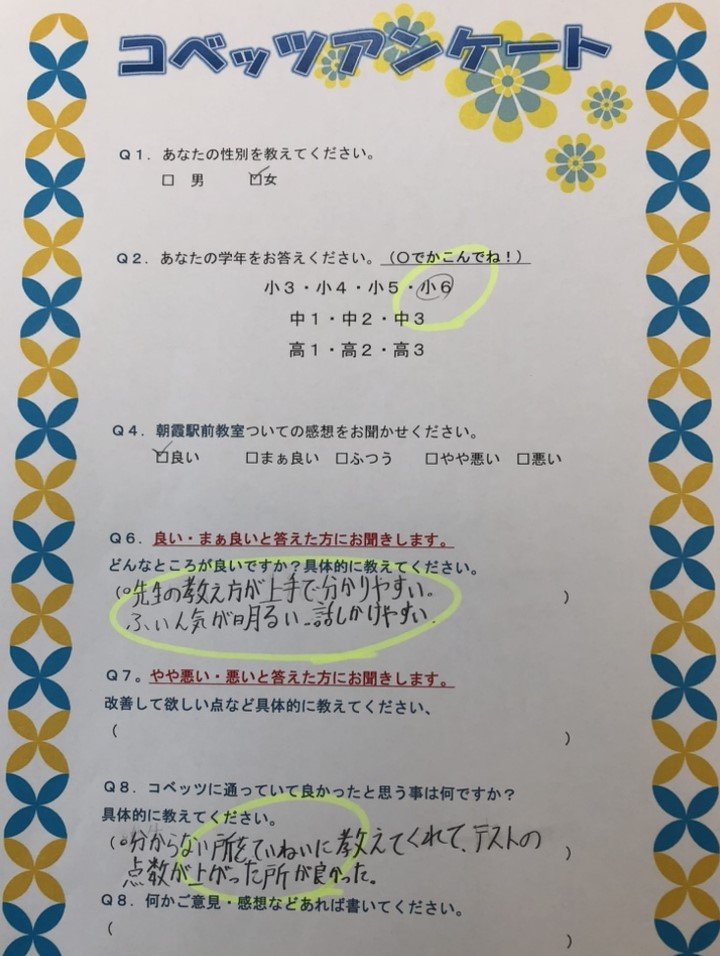 コベッツアンケート
Q1. あなたの性別を教えてください。
□ 男 ☑女
Q2. あなたの学年をお答えください。（○でかこんでね！）
小3・小4・小5・小6
中1・中2・中3
高1・高2・高3
Q4. 朝霞駅前教室ついての感想をお聞かせください。
☑良い □まぁ良い □ふつう □やや悪い □悪い
Q6. 良い・まぁ良いと答えた方にお聞きします。
どんなところが良いですか？具体的に教えてください。
(○先生の教え方が上手で分かりやすい。 )
ふいん気が明るい 話しかけやすい
Q7。やや悪い・悪いと答えた方にお聞きします。
改善して欲しい点など具体的に教えてください、
( )
Q8. コベッツに通っていて良かったと思う事は何ですか？
具体的に教えてください。
(○分からない所をていねいに教えてくれて、テストの )
点数が上がった所が良かった。
Q8. 何かご意見・感想などあれば書いてください。
( )